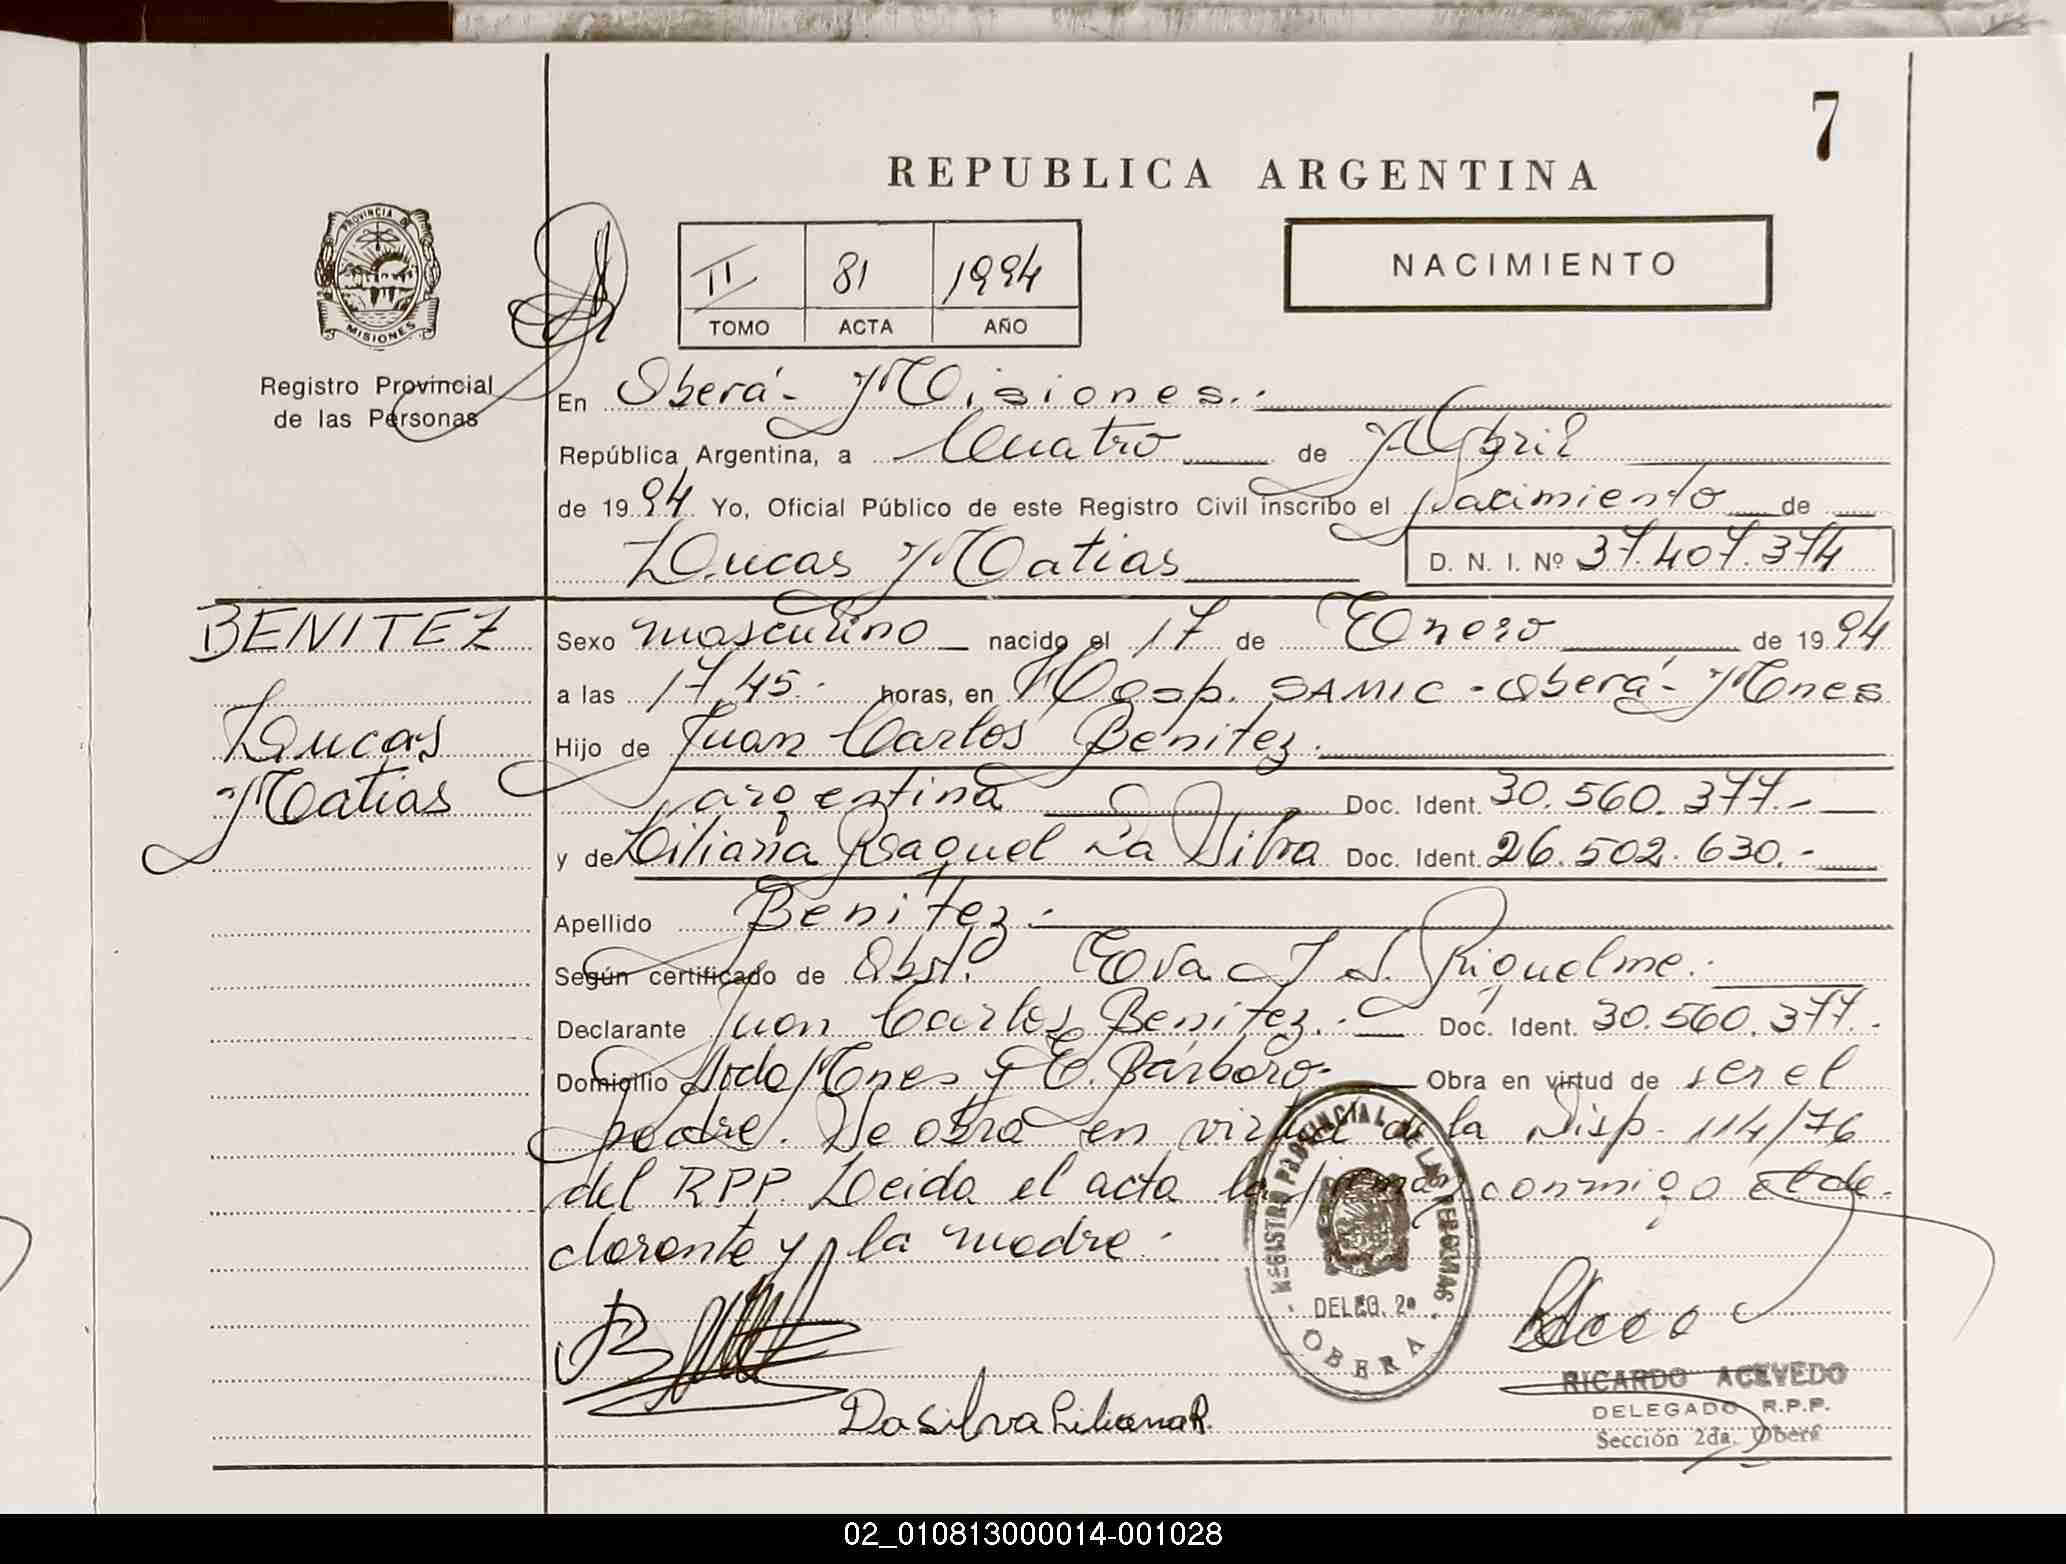 7
REPUBLICA ARGENTINA
PROVINCIA DE
MISIONES
Registro Provincial
de las Personas
II 81 1994
TOMO ACTA AÑO
NACIMIENTO
En Oberá - Misiones.-
República Argentina, a Cuatro de Abril
de 1994 Yo, Oficial Público de este Registro Civil inscribo el Nacimiento de
Lucas Matias D. N. I. Nº 37.407.374
BENITEZ
Lucas
Matias
Sexo masculino nacido el 17 de Enero de 1994
a las 17,45.- horas, en Hosp. SAMIC - Oberá - Mnes
Hijo de Juan Carlos Benitez.
argentina Doc. Ident. 30.560.377.-
y de Liliana Raquel Da Silva Doc. Ident. 26.502.630.-
Apellido Benitez.-
Según certificado de Obst. Eva J S. Riquelme.-
Declarante Juan Carlos Benitez.- Doc. Ident. 30.560.377.-
Domicilio Avda Mnes y E. Bárbaro.- Obra en virtud de ser el
padre. Se obra en virtud de la Disp. 114/76
del RPP. Leida el acta la firman conmigo el de-
clarante y la madre.-
REGISTRO PROVINCIAL DE LAS PERSONAS
DELEG. 2ª
OBERA
Da Silva Liliana R.
RICARDO ACEVEDO
DELEGADO R.P.P.
Sección 2da. Oberá
02_010813000014-001028